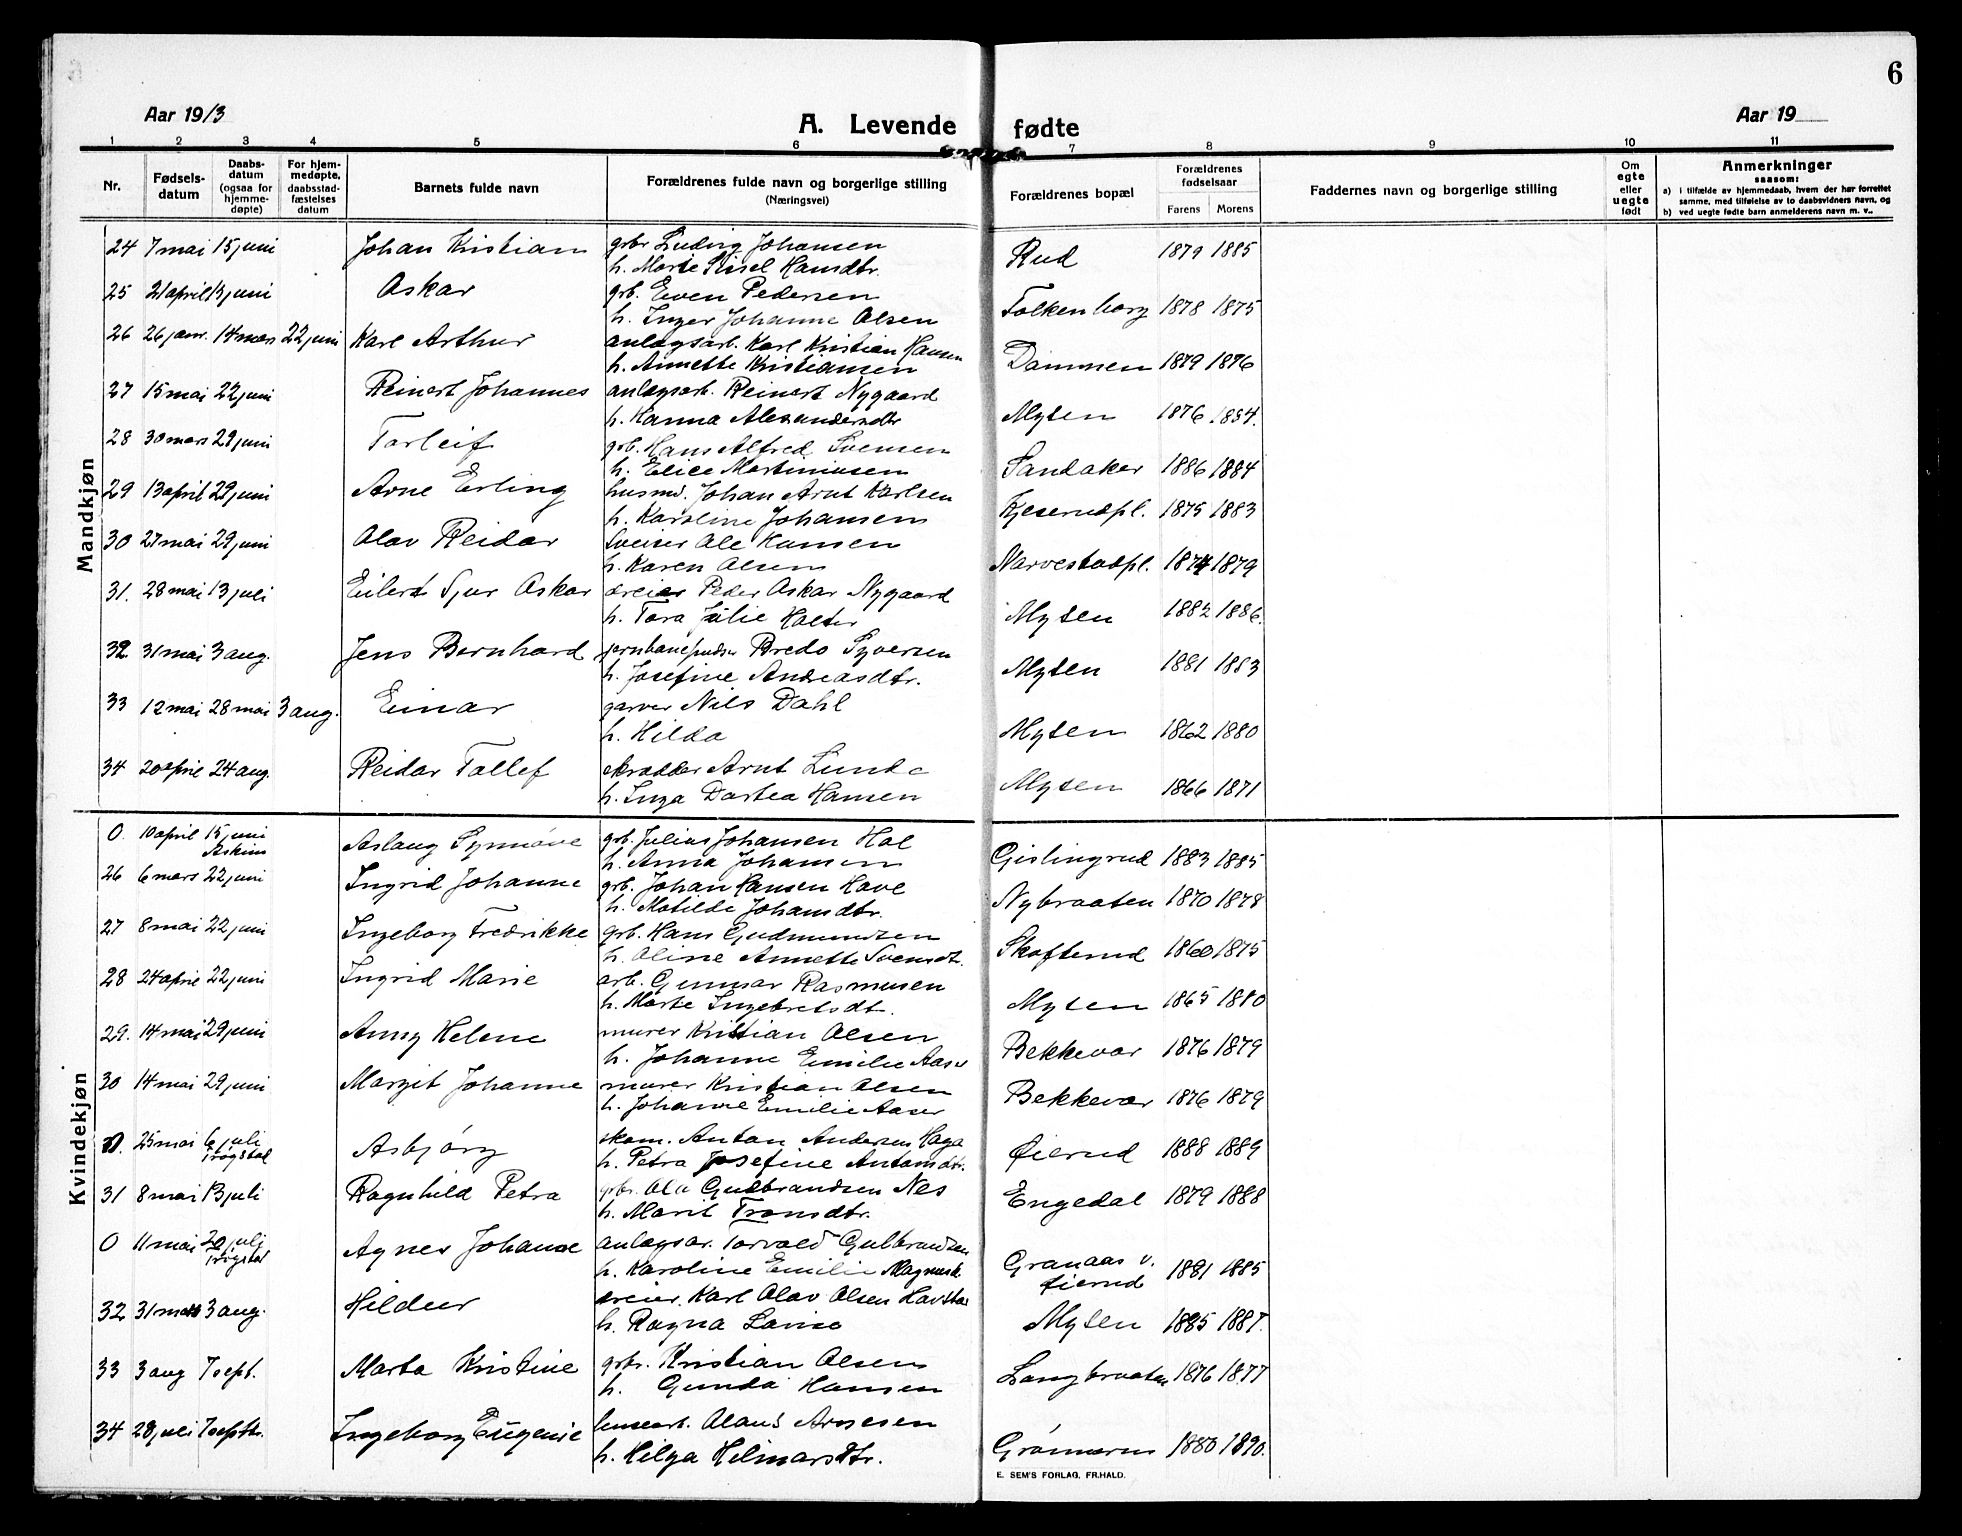 6
Aar 1913
A. Levende fødte
Aar 19
1 2 3 4 5 6 7 8 9 10 11
Nr.
Fødselsdatum
Daabsdatum (ogsaa for hjemmedøpte)
For hjemmedøpte, daabsstadfæstelses datum
Barnets fulde navn
Forældrenes fulde navn og borgerlige stilling (Næringsvei)
Forældrenes bopæl
Forældrenes fødselsaar
Farens Morens
Faddernes navn og borgerlige stilling
Om egte eller uegte født
Anmerkninger
saasom:
a) i tilfælde av hjemmedaab, hvem der har forrettet samme, med tilføielse av to daabsvidners navn, og
b) ved uegte fødte barn anmelderens navn m. v..
Mandkjøn
24 7 mai 15 juni Johan Kristian grbr Ludvig Johansen Rud 1879 1885
h. Marie Sisel Hansdtr.
25 21 april 13 juni Askar grb. Even Pedersen Folkenborg 1878 1875
h. Inger Johanne Olsen
26 26 janr. 14 mars 22 juni Karl Arthur anlægsarb. Karl Kristian Hansen Dammen 1879 1876
h. Annette Kristiansen
27 15 mai 22 juni Reinert Johannes anlægsarb. Reinert Nygaard Mysen 1876 1884.
h. Hanna Alexandersdtr
28 30 mars 29 juni Torleif grb. Hans Alfred Svensen Sandaker 1886 1884
h. Elice Martiniusen
29 13 april 29 juni Arne Erling husmd. Johan Arnt Karlsen Kjeserudpl. 1875 1883
h. Karoline Johansen
30 27 mai 29 juni Olav Reidar Sveiser Ole Hansen Narvestadpl. 1874 1879
h. Karen Olsen
31. 28 mai 13 juli Eilert Sjur Oskar dreier Peder Oskar Nygaard Mysen 1882 1886.
h. Tora Julie Holter
32 31 mai 3 aug. Jens Bernhard jernbanepudser Bredo Syversen Mysen 1881 1883
h. Josefine Andreasdtr.
33 12 mai 28 mai 3 aug. Einar garver Nils Dahl Mysen 1862 1880
h. Hilda
34 20 april 24 aug. Reidar Tallef skrædder Arnt Lund Mysen 1866 1871
h. Inga Dortea Hansen
Kvindekjøn
0. 10 april 15 juni Askim Aslaug Synnøve grb. Julius Johansen Hol Gislingrud 1883 1885
h. Anna Johansen
26 6 mars 22 juni Ingrid Johanne grb. Johan Hansen Hove Nybraaten 1870 1878
h. Matilde Johansdtr.
27 8 mai 22 juni Ingeborg Fredrikke grb. Hans Gudmundsen Skofterud 1860 1875
h. Oline Annette Svensdt.
28 24 april 22 juni Ingrid Marie arb. Gunnar Rasmusen Mysen 1865 1880
h. Marte Ingebretsdt.
29. 14 mai 29 juni Anny Helene murer Kristian Olsen Bekkevar 1876 1879
h. Johanne Emilie Aaser
30 14 mai 29 juni Margit Johanne murer Kristian Olsen Bekkevar 1876 1879
h. Johanne Emilie Aaser
0. 25 mai 6 juli Trøgstad Asbjørg skom. Anton Andersen Haga Øierud 1888 1889
h. Petra Josefine Antonsdtr.
31 8 mai 13 juli Ragnhild Petra grbr. Ole Gulbrandsen Nes Engedal 1879 1888
h. Marit Tronsdtr.
0 11 mai 20 juli Trøgstad Agnes Johanne anlægsar. Torvald Gulbrandsen Granaas v. Øierud 1881 1885
h. Karoline Emilie
32 31 mars 3 aug. Hildur dreier. Karl Olav Olsen Mysen 1885 1887.
h. Ragna
33 3 aug 7 sept. Marta Kristine grbr. Kristian Olsen Langbraaten 1876 1877
h. Gunda Hansen
34 28 juli 7 septbr. Ingeborg Eugenie Olaus Arnesen 1880 1890.
h. Hilga Hilmarsdtr.
E. SEM'S FORLAG, FR.HALD.